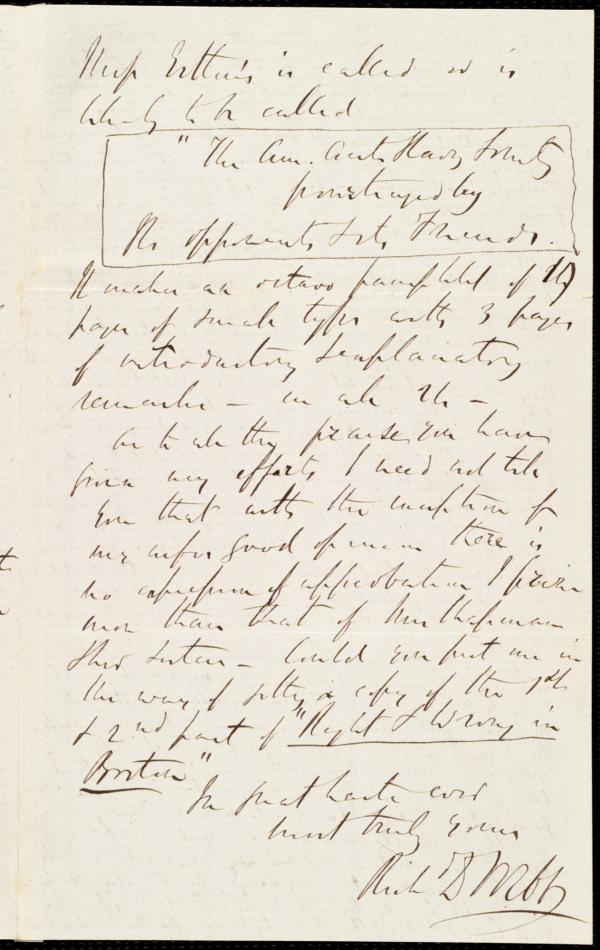 Miss Estlin's is called or is
likely to be called
"The Am. Anti Slavery Society
pourtrayed by
its opponents & its Friends.
It makes an octavo pamphlet of
pages of small type with 3 pages
of introductory & explanatory
remarks — in all 2h —
As to all the praises you have
given my efforts I need not tell
you that with the exception of
my wifes good opinion there is
no expression of approbation I prize
more than that of Mrs Chapman
& her sisters — Could you put me in
the way of getting a copy of the 1st
& 2nd part of "Right & Wrong in
Boston"
In great haste ever
most truly yours
Richd D Webb